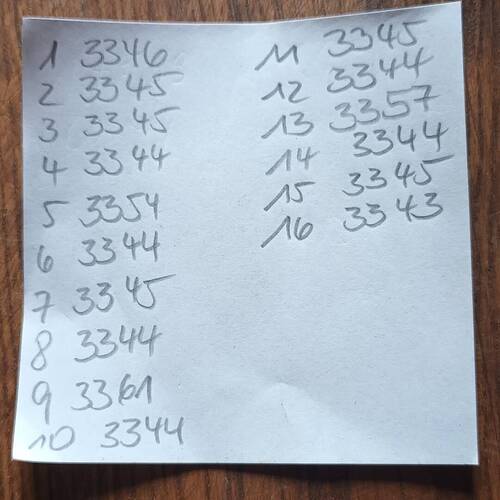 1 3346
2 3345
3 3345
4 3344
5 3354
6 3344
7 3345
8 3344
9 3361
10 3344
11 3345
12 3344
13 3357
14 3344
15 3345
16 3343